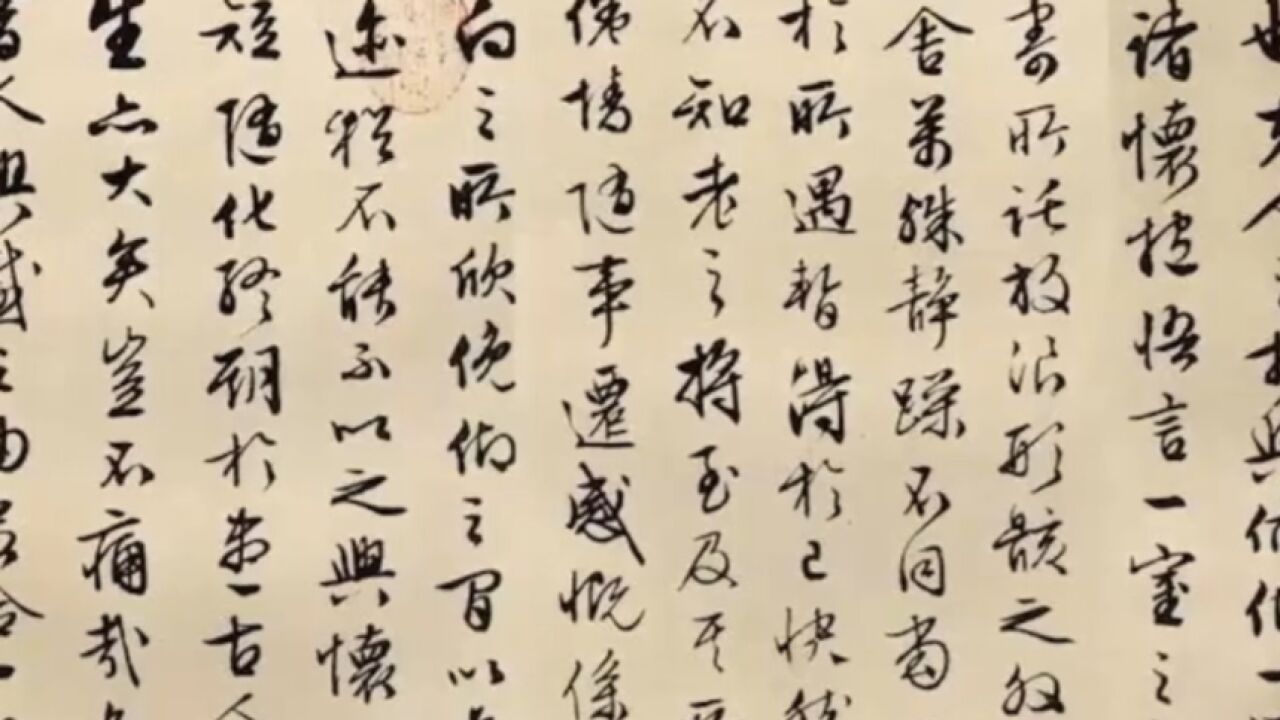 也夫人之相與俯仰一
諸懷抱悟言一室之
寄所託放浪形骸之外
舍萬殊靜躁不同當
於所遇暫得於己快然
不知老之將至及其所
倦情隨事遷感慨係
向之所欣俛仰之閒以
迹猶不能不以之興懷
短隨化終期於盡古人
生亦大矣豈不痛哉
昔人興感之由若合一